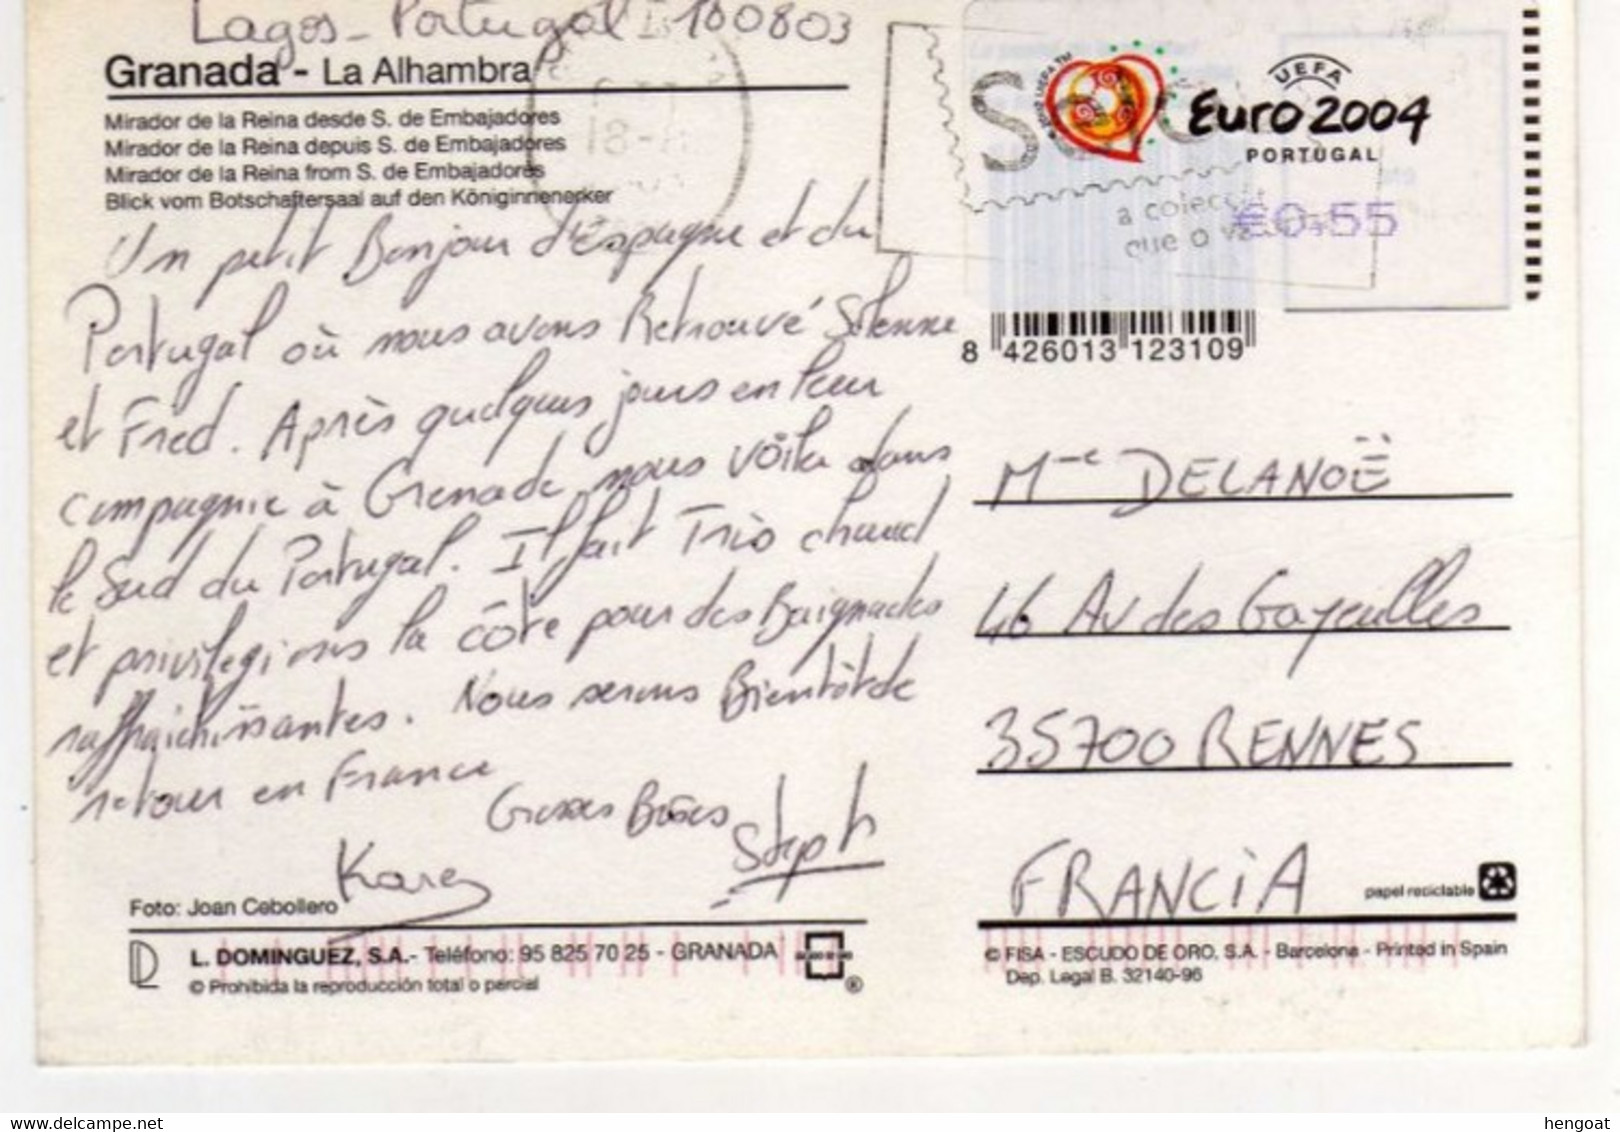 Lagos - Portugal 180803
Granada - La Alhambra
Mirador de la Reina desde S. de Embajadores
Mirador de la Reina depuis S. de Embajadores
Mirador de la Reina from S. de Embajadores
Blick vom Botschaftersaal auf den Königinnenerker
Un petit Bonjour d'Espagne et du
Portugal où nous avons Retrouvé Solenne
et Fred. Après quelques jours en leur
compagnie à Grenade nous voila dans
le Sud du Portugal. Il fait Très chaud
et privilegions la côte pour des Baignades
raffraichissantes. Nous serons Bientôt de
retour en France
Grosses Bises
Karen
Steph
Foto: Joan Cebollero
L. DOMINGUEZ, S.A.- Teléfono: 95 825 70 25 - GRANADA
© Prohibida la reproducción total o parcial
UEFA
Euro 2004
PORTUGAL
€0,55
a
que o
8 426013 123109
Mme DELANOË
46 Av des Gayeulles
35700 RENNES
FRANCIA
papel reciclable
© FISA - ESCUDO DE ORO, S.A. - Barcelona - Printed in Spain
Dep. Legal B. 32140-96
hengoat
delcampe.net